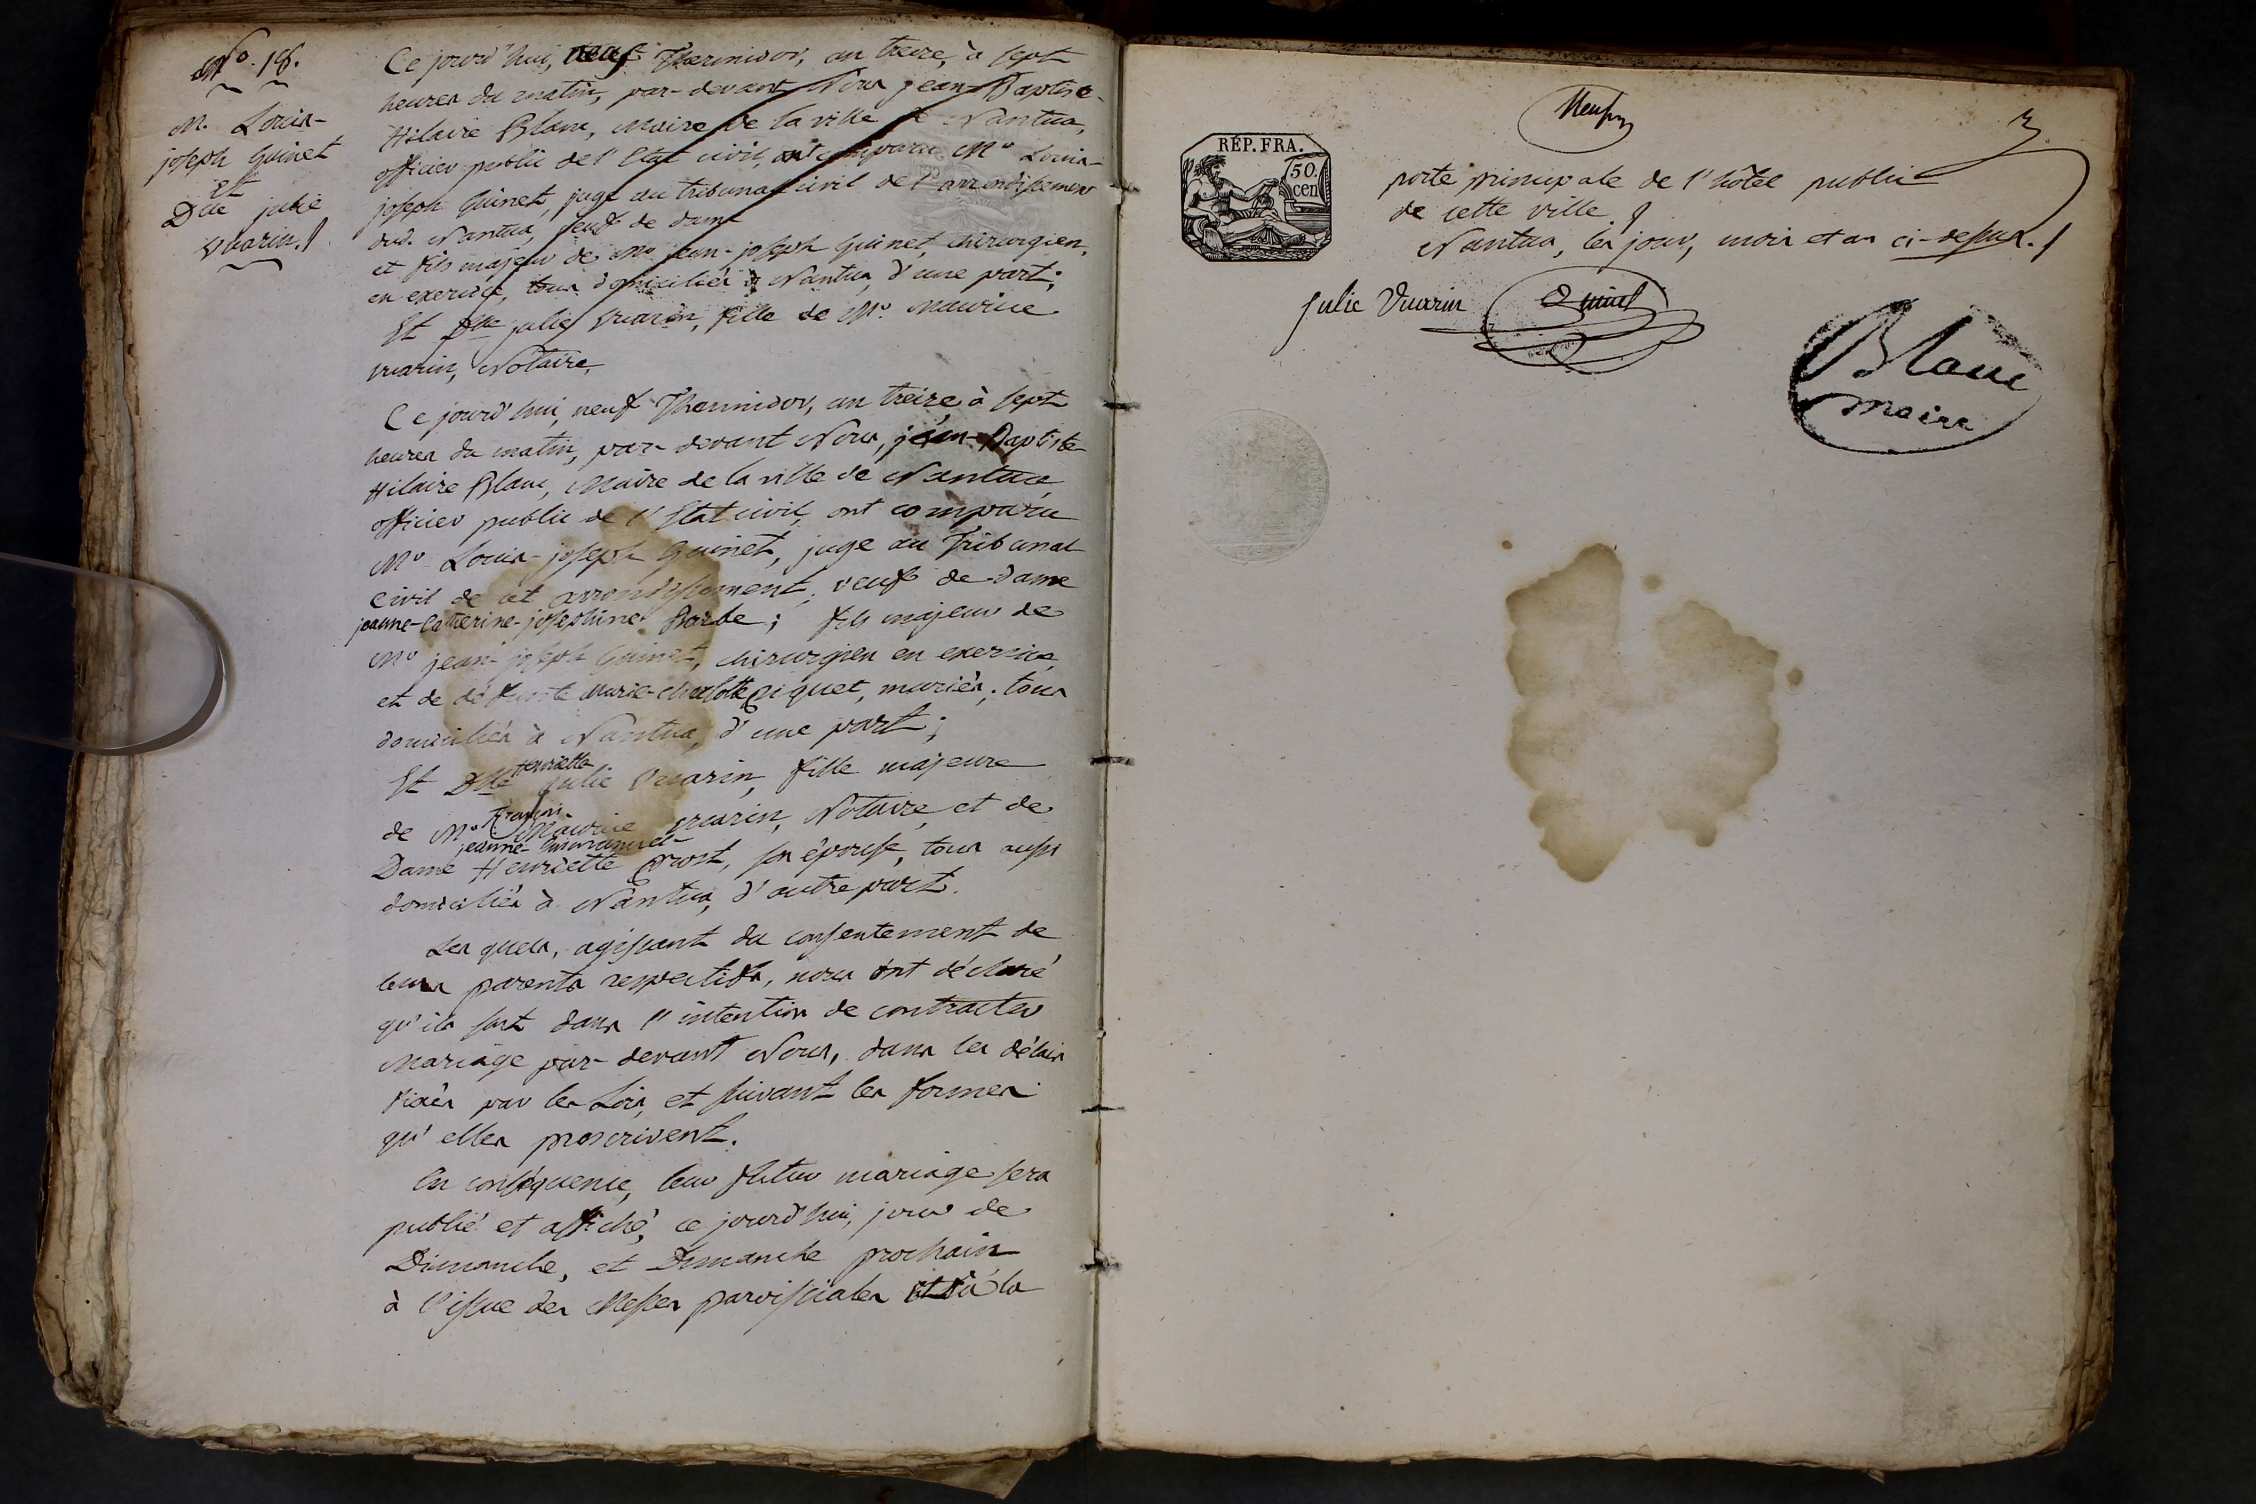 No. 18.
M. Louis-
joseph Guinet
Et
Dlle julie
Vuarin.
Ce jourd'hui, neuf Thermidor, an treize, à sept
heures du matin, par-devant Nous jean-Baptiste-
Hilaire Blanc, Maire de la ville de Nantua,
officier public de l'Etat civil, ont comparu Mr Louis-
joseph Guinet, juge au tribunal civil de l'arrondissement
dud. Nantua, veuf de dame
et fils majeur de Mr jean-joseph Guinet, chirurgien,
en exercice, tous domiciliés à Nantua, d'une part;
Et Dlle julie Vuarin, fille de Mr. Maurice
vuarin, Notaire,
Ce jourd'hui, neuf Thermidor, an treize à sept
heures du matin, par-devant Nous, jean-Baptiste
Hilaire Blanc, Maire de la ville de Nantua,
officier public de l'Etat civil, ont comparu
Mr Louis-joseph Guinet, juge au Tribunal
civil de cet arrondissement, veuf de Dame
jeanne-Catherine-josephine Barbe; fils majeur de
Mr jean-joseph Guinet, chirurgien en exercice,
et de défunte Marie-Charlotte Piquet, mariés; tous
domiciliés à Nantua, d'une part;
Henriette
Et Dlle julie Vuarin, fille majeure
françois-
de Mr Maurice vuarin, Notaire, et de
jeanne-
Dame Henriette Prost, son épouse, tous aussi
domiciliés à Nantua, d'autre part.
Les quels, agissant du consentement de
leurs parents respectifs, nous ont déclaré
qu'ils sont dans l'intention de contracter
Mariage par-devant Nous, dans les délais
fixés par les Lois, et suivant les formes
qu'elles prescrivent.
En conséquence, leur futur mariage sera
publié et affiché, ce jourd'hui, jour de
Dimanche, et Dimanche prochain
à l'issue des Messes paroissiales et à la
Neuf
3.
RÉP. FRA.
50.
cen
porte principale de l'hôtel public
de cette ville.
Nantua, les jour, mois et an ci-dessus.
Julie Vuarin Guinet
Blanc
maire